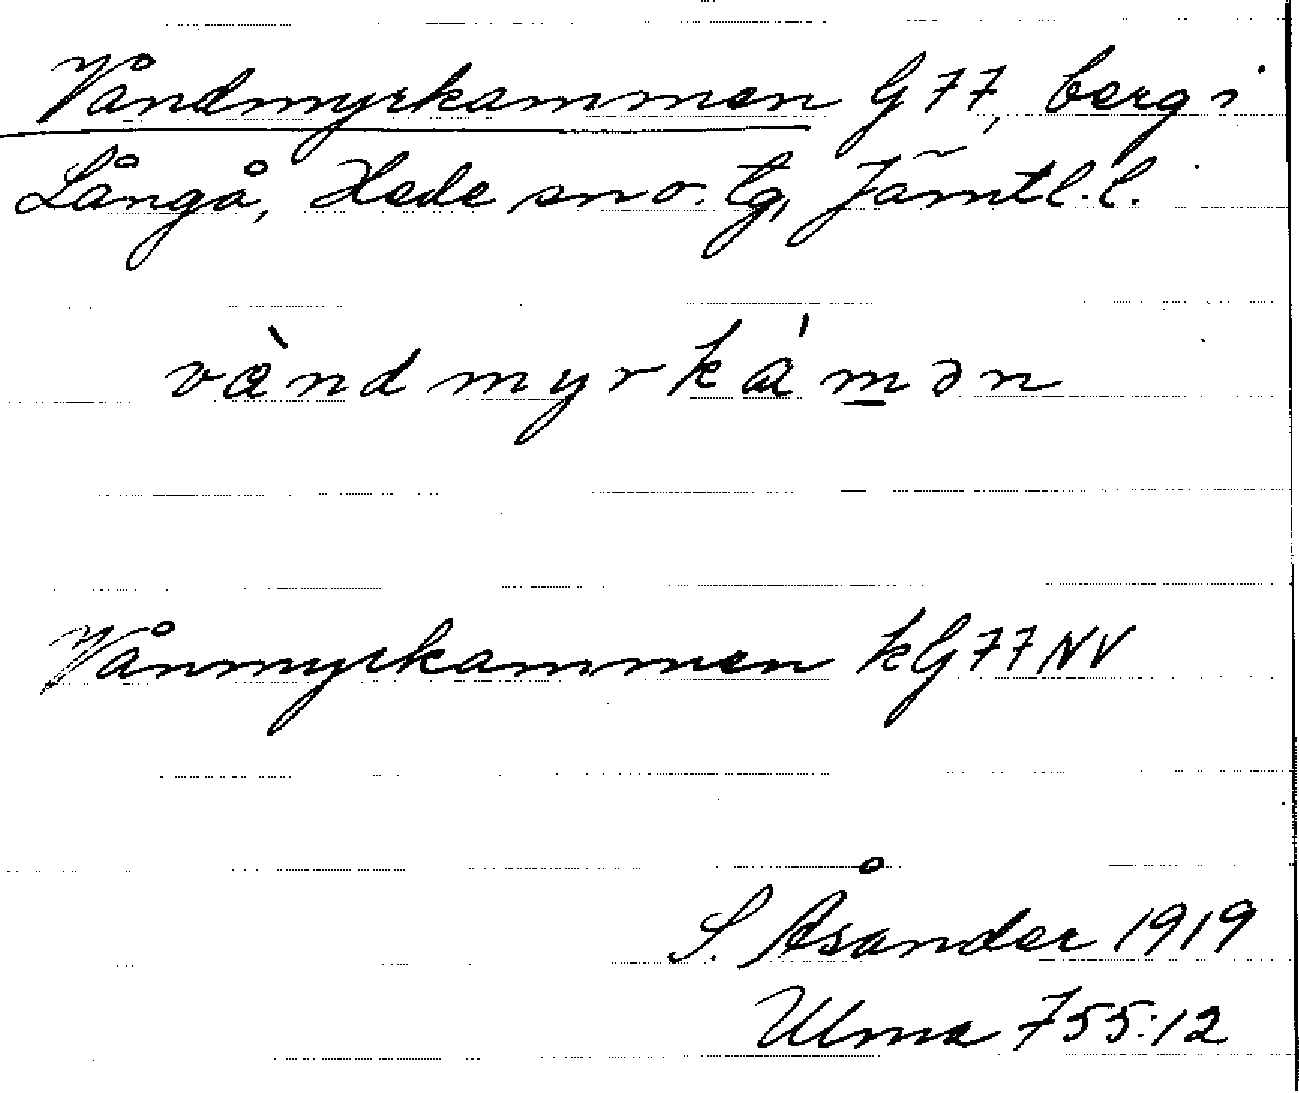 Våndmyrkammen G77, berg i
Långå, Hede sn o. tg, Jämtl. l.
vànd myrkámən
Vånmyrkammen kG77NV
S. Åsander 1919
Ulma 755:12